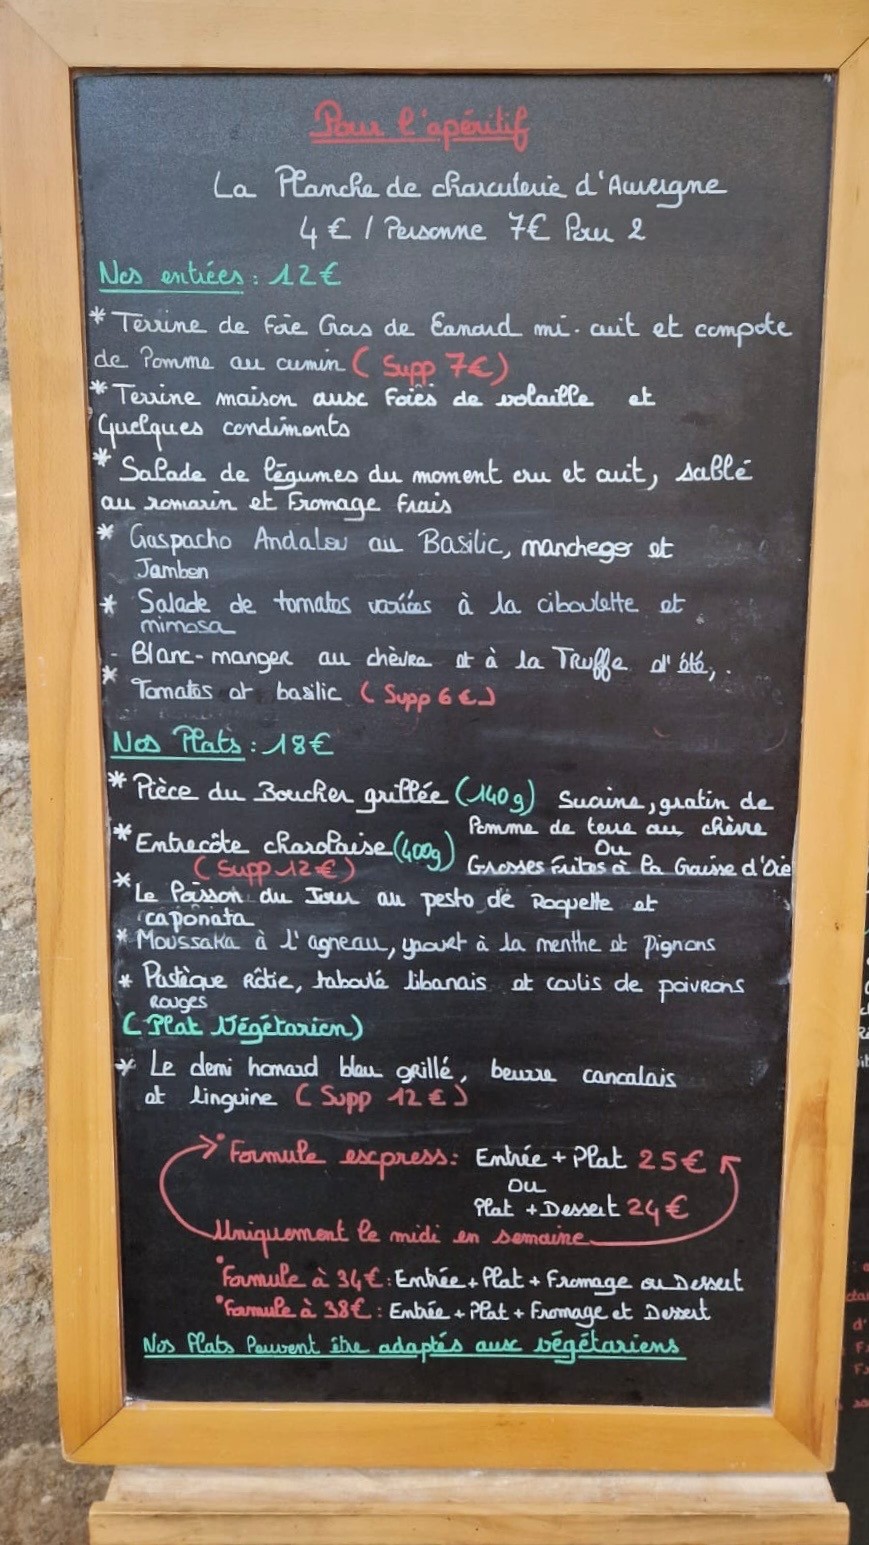 Pour l'apéritif
La Planche de charcuterie d'Auvergne
4 € / Personne 7€ Pour 2
Nos entrées : 12 €
* Terrine de Foie Gras de Canard mi-cuit et compote
de Pomme au cumin ( Supp 7€ )
* Terrine maison aux Foies de volaille et
Quelques condiments
* Salade de légumes du moment cru et cuit, sablé
au romarin et Fromage Frais
* Gaspacho Andalou au Basilic, manchego et
Jambon
* Salade de tomates variées à la ciboulette et
mimosa
- Blanc-manger au chèvre et à la Truffe d'été,
* Tomates et basilic ( Supp 6 € )
Nos Plats : 18 €
* Pièce du Boucher grillée (140g) Sucrine, gratin de
Pomme de terre au chèvre
* Entrecôte charolaise (400g) Ou
( Supp 12 € ) Grosses Frites à la Graisse d'Oie
* Le Poisson du Jour au pesto de Roquette et
caponata
* Moussaka à l'agneau, yaourt à la menthe et pignons
* Pastèque Rôtie, taboulé libanais et coulis de poivrons
Rouges
( Plat Végétarien )
* Le demi homard bleu grillé, beurre cancalais
et linguine ( Supp 12 € )
• Formule express : Entrée + Plat 25 €
ou
Plat + Dessert 24 €
Uniquement le midi en semaine
• Formule à 34 € : Entrée + Plat + Fromage ou Dessert
• Formule à 38 € : Entrée + Plat + Fromage et Dessert
Nos Plats Peuvent être adaptés aux végétariens